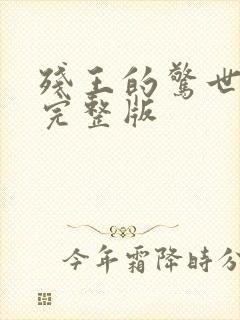 残王的驚世
完整版
今年霜降時分